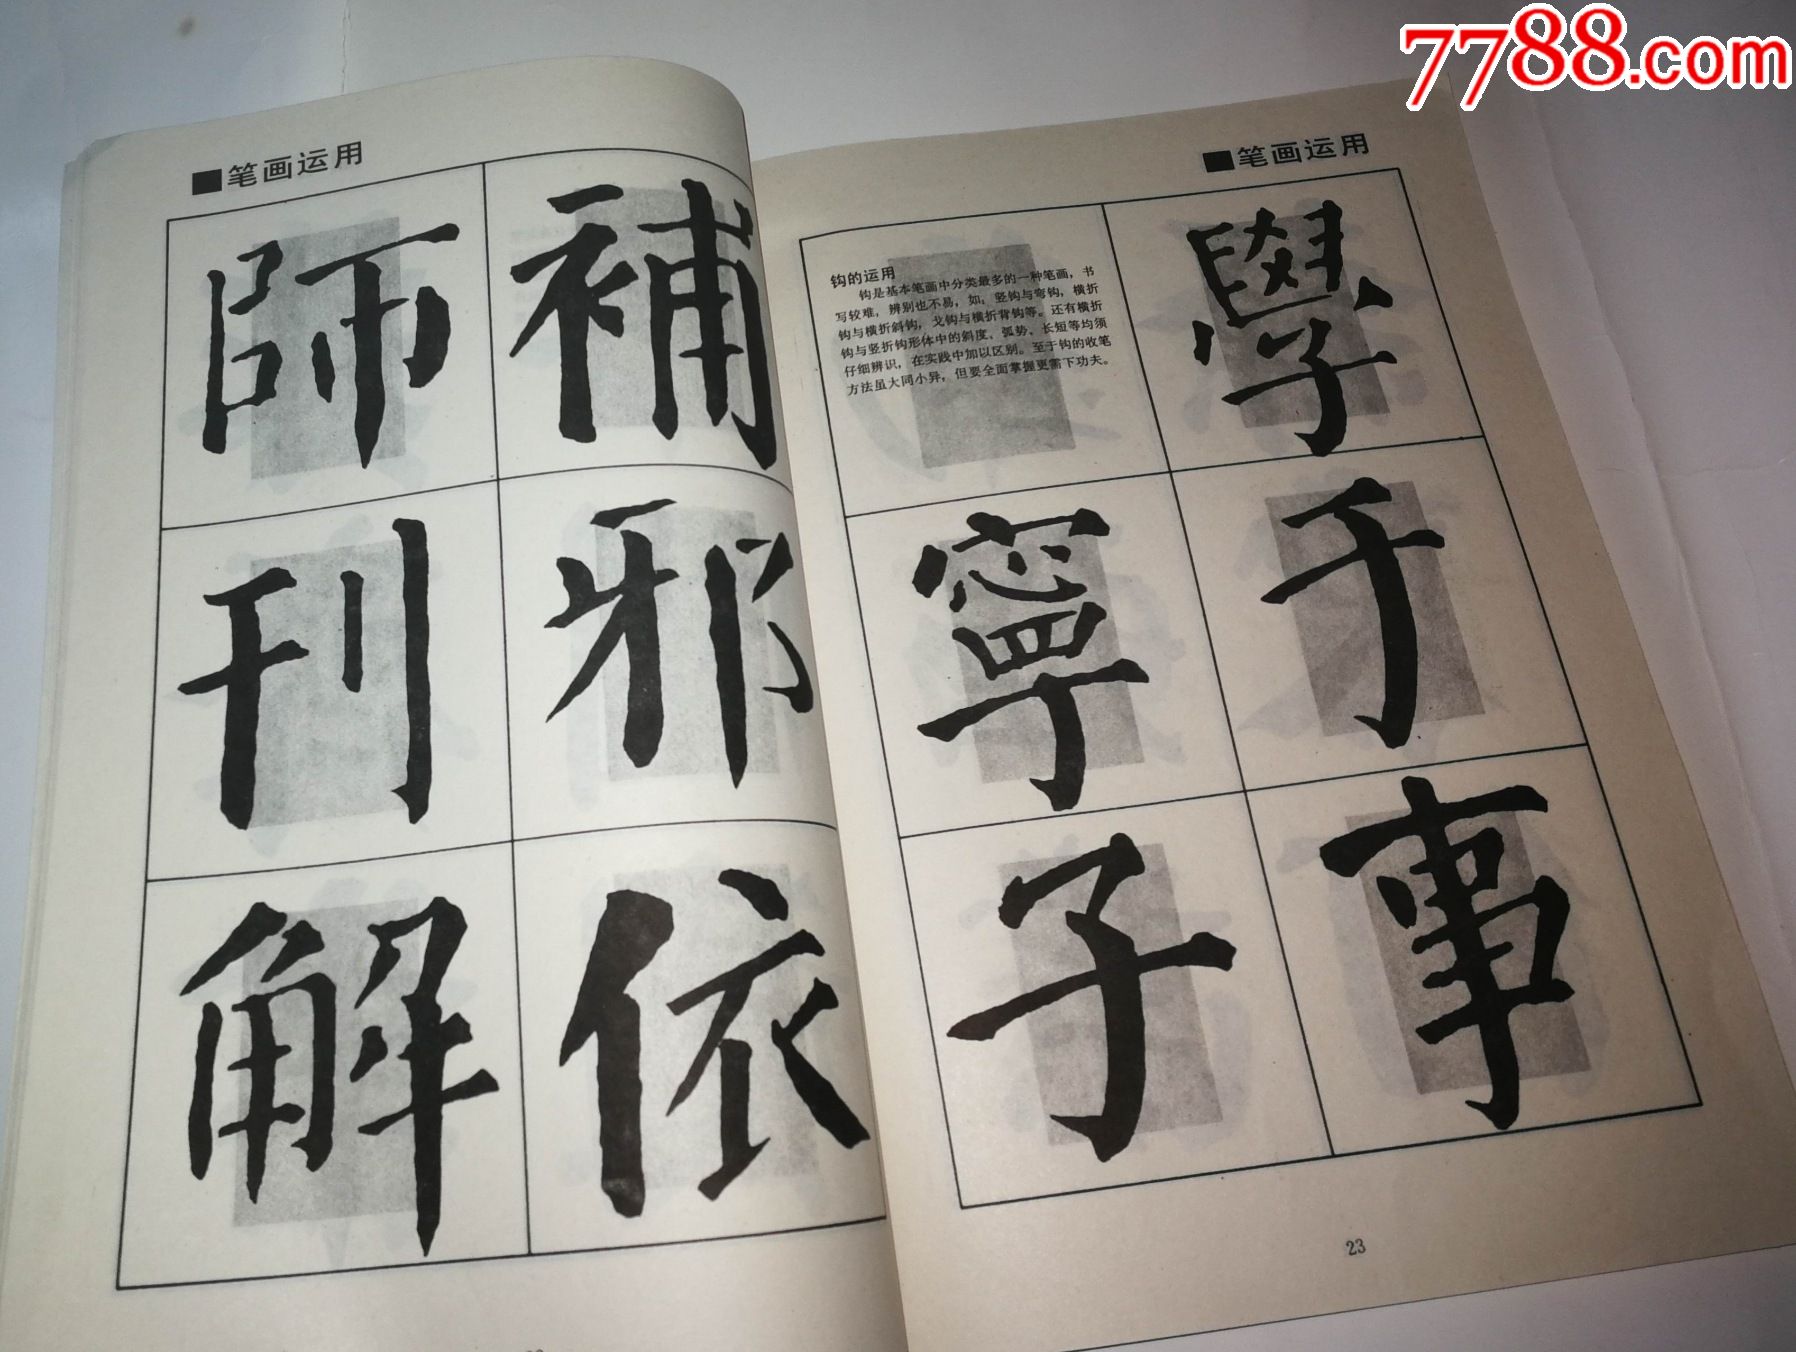 7788.com
■笔画运用
師補
刊邪
解依
■笔画运用
钩的运用
钩是基本笔画中分类最多的一种笔画，书
写较难，辨别也不易，如：竖钩与弯钩，横折
钩与横折斜钩，戈钩与横折背钩等。还有横折
钩与竖折钩形体中的斜度、弧势、长短等均须
仔细辨识，在实践中加以区别。至于钩的收笔
方法虽大同小异，但要全面掌握更需下功夫。
學
寧于
子事
23